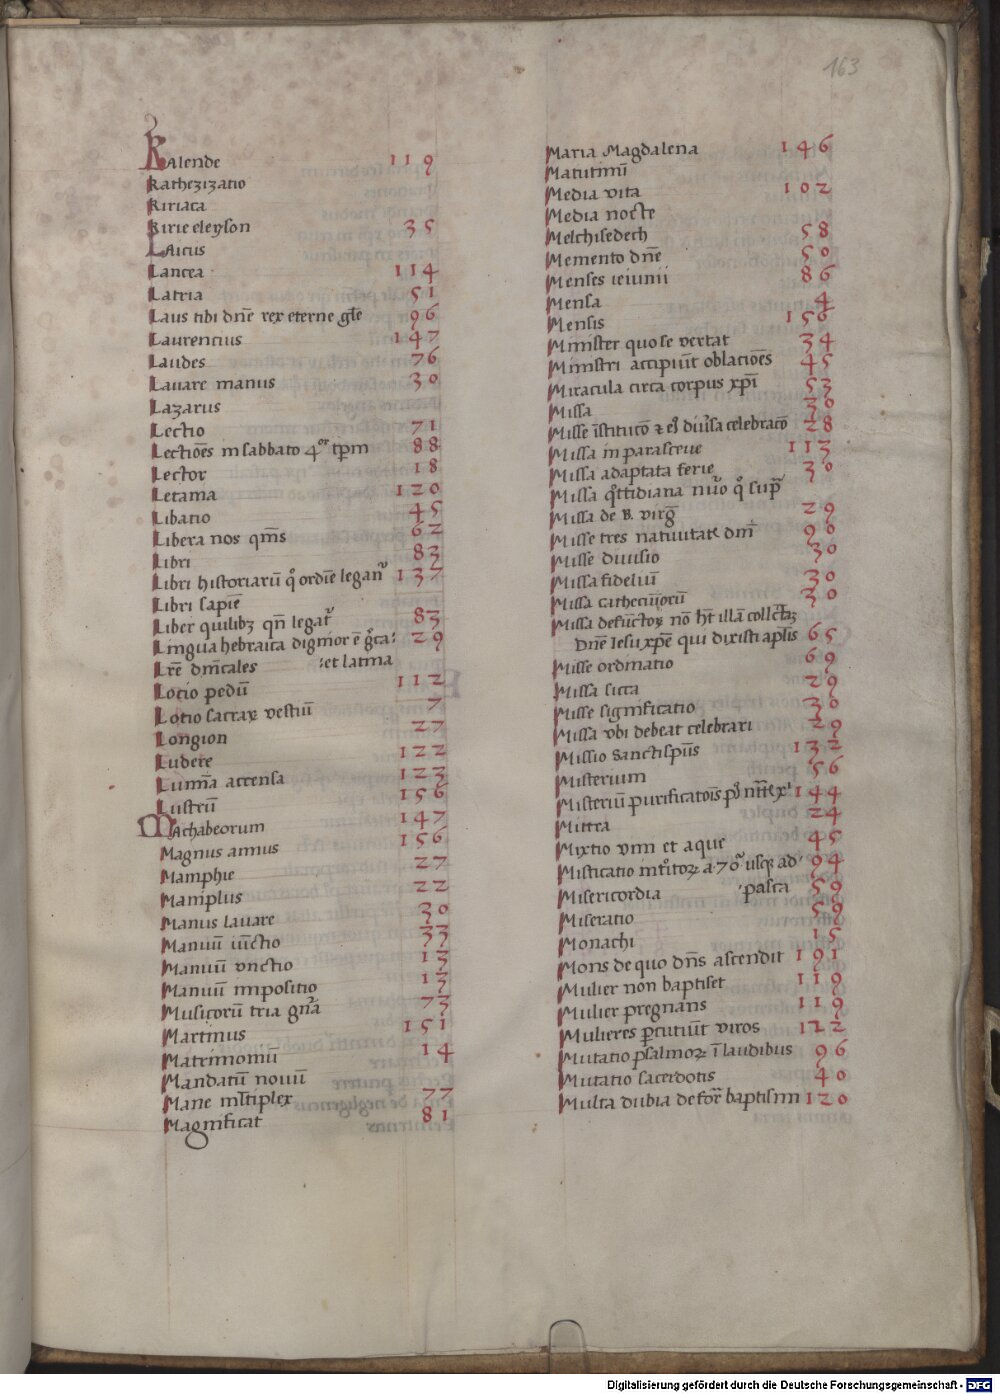 163
Kalende 119
Kathezizatio
Kiriaca
Kirie eleyson 35
Laicus
Lancea 114
Latria 51
Laus tibi dn̄e rex eterne gl̄e 96
Laurencius 147
Laudes 76
Lauare manus 30
Lazarus
Lectio 71
Lectiōes in sabbato 4or tp̄m 88
Lector 18
Letania 120
Libatio 45
Libera nos qm̄s 62
Libri 83
Libri historiarū qͦ ordīe legant᷑ 137
Libri sapīe
Liber quilibꝫ qn̄ legat᷑ 83
Lingua hebraica dignior ē gͣca 29
et latina
Lr̄e dn̄icales
Locio pedū 112
Lotio sacraꝝ vestiū 7
Longion 27
Ludere 122
Lumīa accensa 123
Lustrū 156
Machabeorum 147
Magnus annus 156
Mamphie 27
Maniplus 22
Manus lauare 30
Manuū iūctio 33
Manuū vnctio 13
Manuū impositio 13
Musicorū tria gn̄a 73
Martinus 151
Matrimoniū 14
Mandatū nouū
Mane ml̄tiplex 77
Magnificat 81
Maria Magdalena 146
Matutinū
Media vita 102
Media nocte
Melchisedech 58
Memento dn̄e 50
Menses ieiunii 86
Mensa 4
Mensis 156
Minister quo se vertat 34
Ministri accipiūt oblatiōes 45
Miracula circa corpus xp̄i 53
Missa 30
Misse īstitucō ⁊ eiꝰ diūsa celebracō 28
Missa in parasceue 113
Missa adaptata ferie 30
Missa qͦttidiana nūo qͦ sup̄
Missa de B. virḡ 29
Misse tres natiuitate dn̄i 90
Misse diuisio 30
Missa fideliū 30
Missa cathecuī̄orū 30
Missa defūctoꝝ nō hn̄t illā collectā
Dn̄e Iesu xp̄e qui dixisti apl̄is 65
Misse ordinatio 69
Missa sicca 29
Misse significatio 30
Missa vbi debeat celebrari 29
Missio sancti sp̄us 132
Misterium 56
Misteriū purificatōis 144
Mitra 24
Mixtio vini et aque 45
Misticatio a 70ͣ vsqꝫ ad 94
pasca
Misericordia 59
Miseratio 59
Monachi 15
Mons de quo dn̄s ascendit 191
Mulier non baptiset 119
Mulier pregnans 119
Mulieres p̱cutiūt viros 122
Mutatio psalmoꝝ ī laudibus 96
Mutatio sacerdotis 40
Multa dubia de for̄ baptismi 120
Digitalisierung gefördert durch die Deutsche Forschungsgemeinschaft - DFG